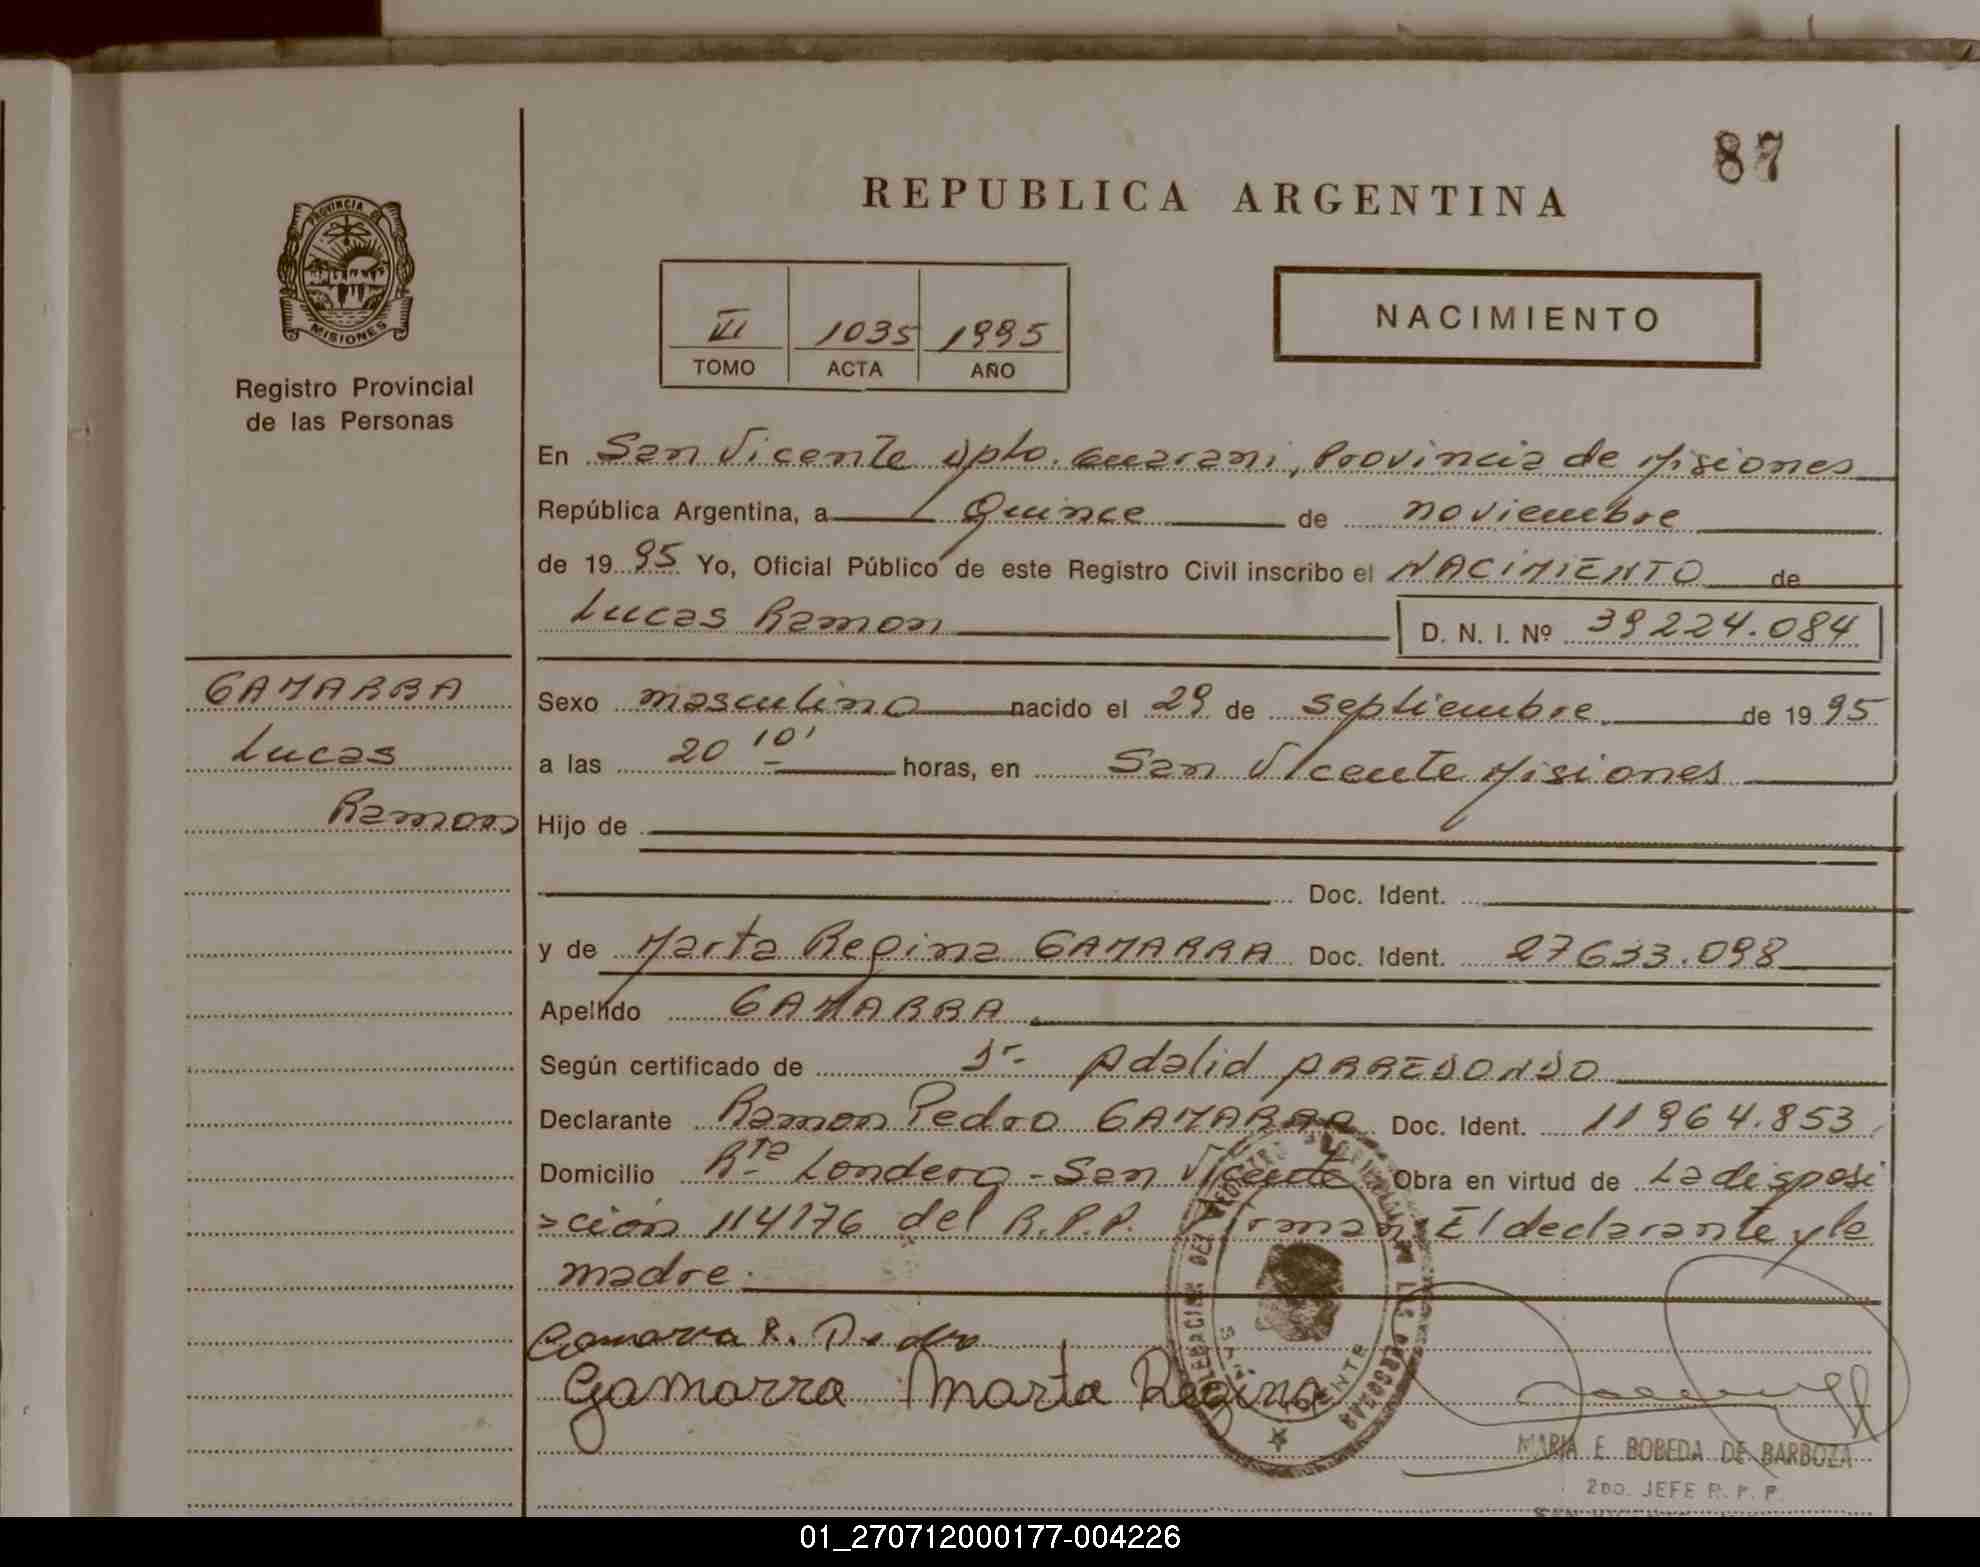 87
REPUBLICA ARGENTINA
PROVINCIA DE
MISIONES
Registro Provincial
de las Personas
1035 1995
TOMO ACTA AÑO
NACIMIENTO
En San Vicente Dpto. Guarani, Provincia de Misiones
República Argentina, a Quince de noviembre
de 1995 Yo, Oficial Público de este Registro Civil inscribo el NACIMIENTO de
Lucas Ramon D. N. I. Nº 39224.084
GAMARRA
Lucas
Ramon
Sexo masculino nacido el 29 de septiembre de 1995
a las 20 10' horas, en San Vicente Misiones
Hijo de
Doc. Ident.
y de Marta Regina GAMARRA Doc. Ident. 27633.098
Apellido GAMARRA
Según certificado de Dr- Adalid ARREDONDO
Declarante Ramon Pedro GAMARRA Doc. Ident. 11964.853
Domicilio Rta Londero - San Vicente Obra en virtud de La disposi
ción 114176 del R.P.P. Firman: El declarante y la
madre.
Gamarra R. Pedro
Gamarra Marta Regina
MARIA E. BOBEDA DE BARBOZA
2DO. JEFE R. P. P.
01_270712000177-004226